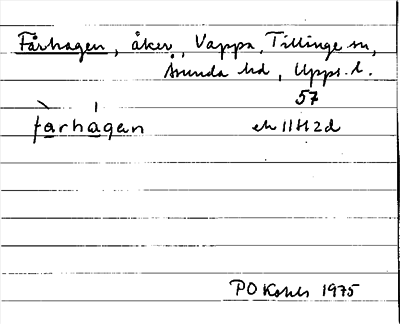 Fårhagen, åker, Vappa, Tillinge sn,
Åsunda hd, Upps. l.
57
fàrhágen ek 11H2d
PO 1975